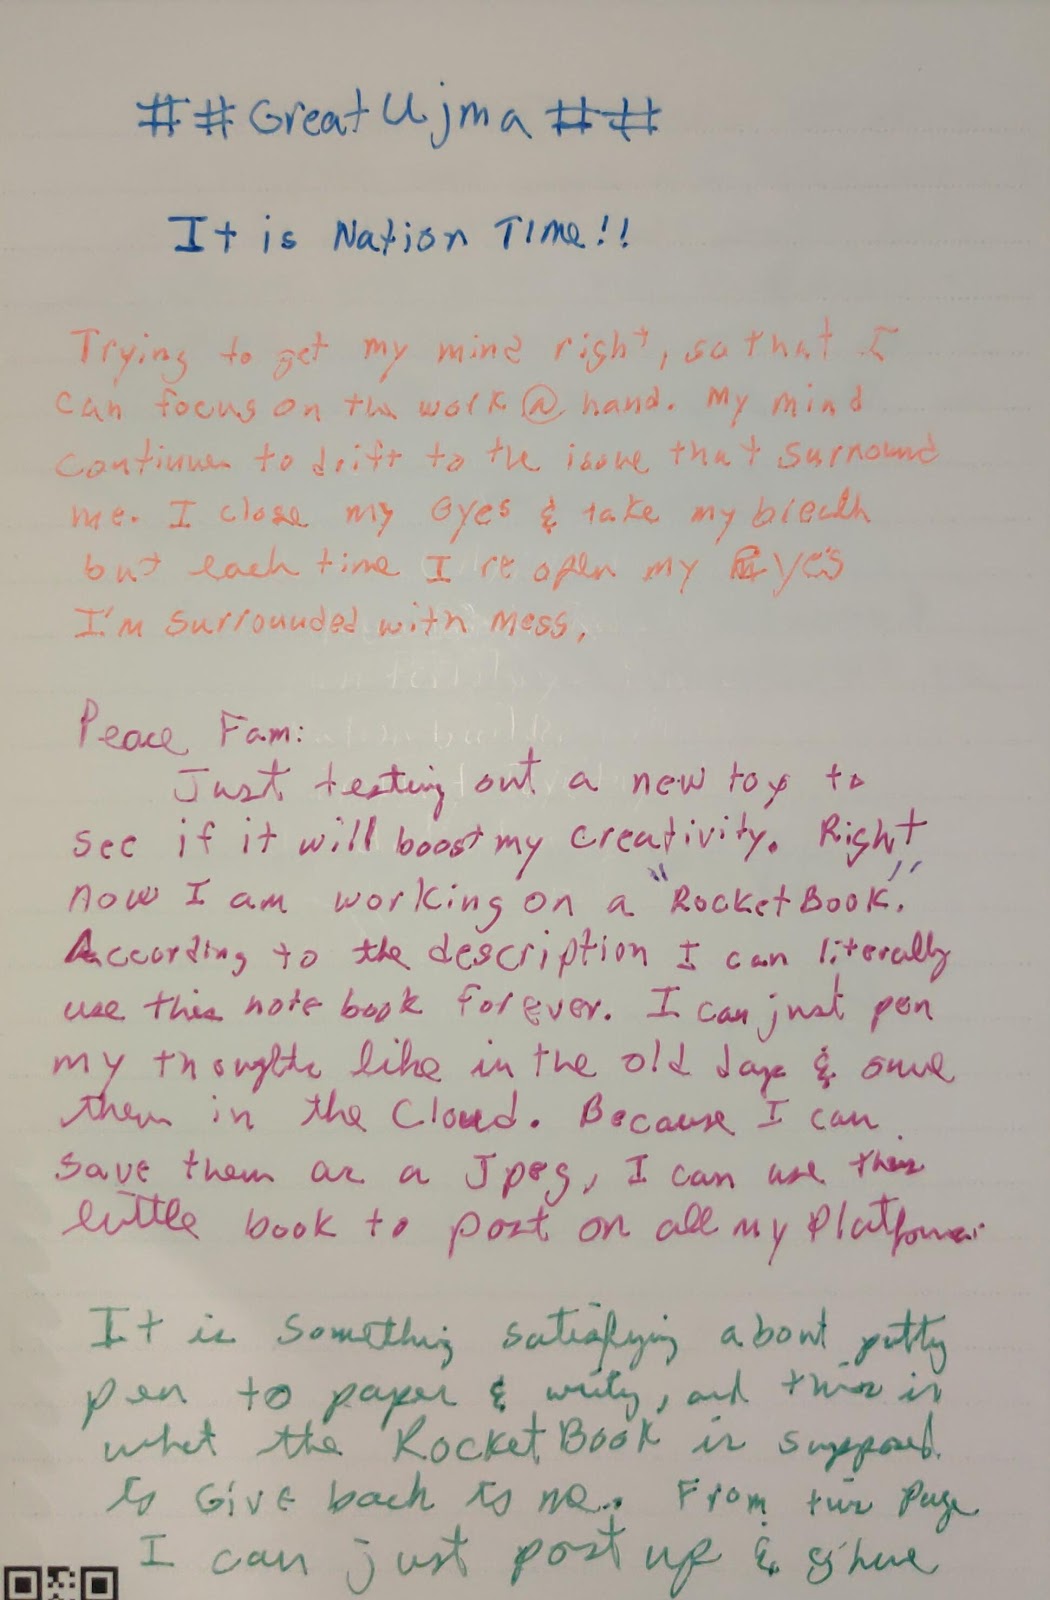 ##GreatUjma##
It is Nation Time!!
Trying to get my mind right, so that I
can focus on the work @ hand. My mind
continues to drift to the issue that surround
me. I close my eyes & take my breath
but each time I re open my Eyes
I'm surrounded with mess.
Peace Fam:
Just testing out a new toy to
see if it will boost my creativity. Right
now I am working on a "RocketBook."
According to the description I can literally
use this note book forever. I can just pen
my thoughts like in the old days & save
them in the Cloud. Because I can
save them as a Jpeg, I can use this
little book to post on all my Platforms.
It is something satisfying about putting
pen to paper & writing, and this is
what the RocketBook is supposed
to Give back to me. From this Page
I can just post up & share